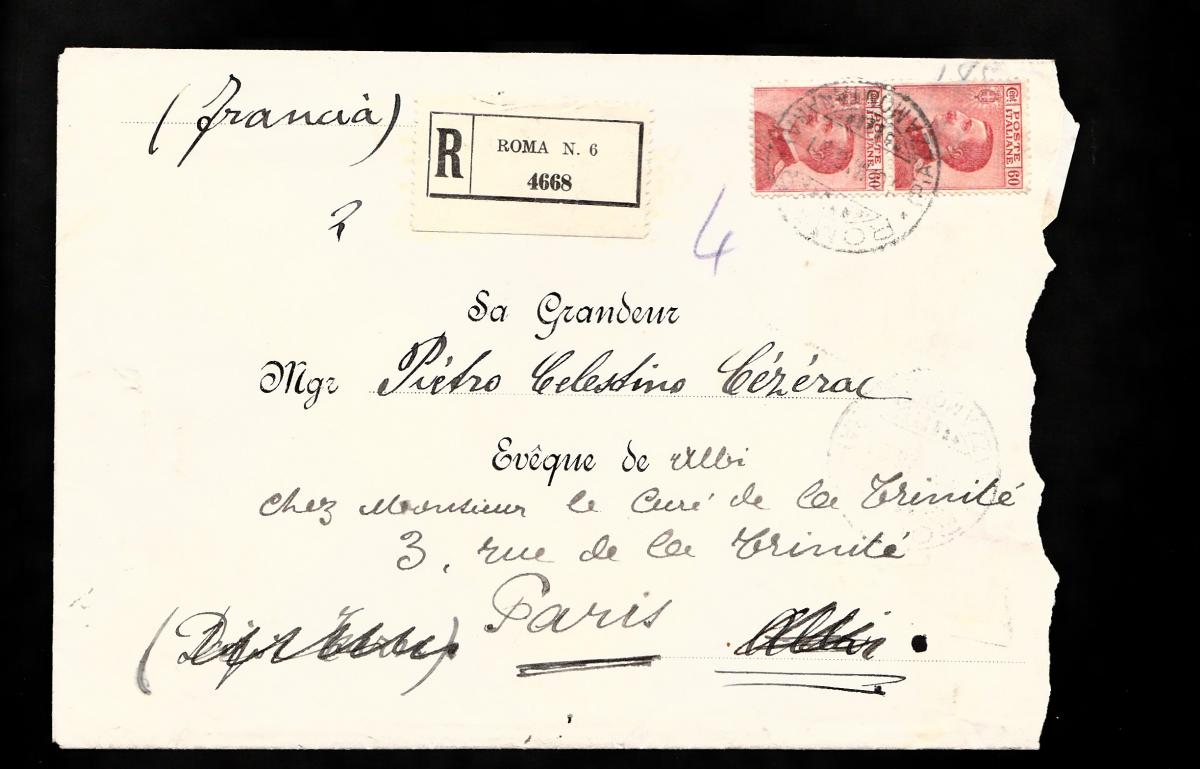 (Francià)
R
ROMA N. 6
4668
POSTE ITALIANE
Cent 60
POSTE ITALIANE
Cent 60
4
Sa Grandeur
Mgr Piétro Celestino Cézérac
Evêque de Albi
chez Monsieur le Curé de la Trinité
3, rue de la Trinité
Paris
Albi